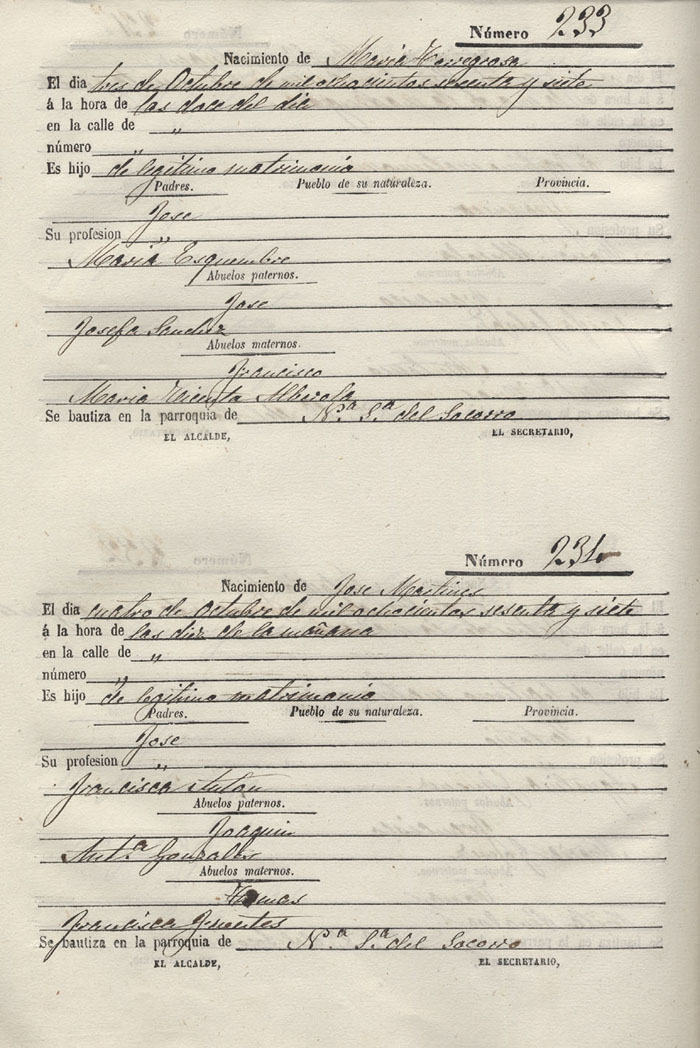 Número 233
Nacimiento de Maria Torregrosa
El dia tres de Octubre de mil ochocientos sesenta y siete
á la hora de las doce del dia
en la calle de "
número "
Es hijo de legitimo matrimonio
Padres. Pueblo de su naturaleza. Provincia.
Jose
Su profesion "
Maria Esquembre
Abuelos paternos.
Jose
Josefa Sanchez
Abuelos maternos.
Francisco
Maria Vicenta Alberola
Se bautiza en la parroquia de Nª Sª del Socorro
EL ALCALDE, EL SECRETARIO,
Número 234
Nacimiento de Jose Martines
El dia cuatro de Octubre de mil ochocientos sesenta y siete
á la hora de las diez de la mañana
en la calle de "
número "
Es hijo de legitimo matrimonio
Padres. Pueblo de su naturaleza. Provincia.
Jose
Su profesion "
Francisca Anton
Abuelos paternos.
Joaquin
Antª Gonzales
Abuelos maternos.
Tomas
Francisca Fuentes
Se bautiza en la parroquia de Nª Sª del Socorro
EL ALCALDE, EL SECRETARIO,